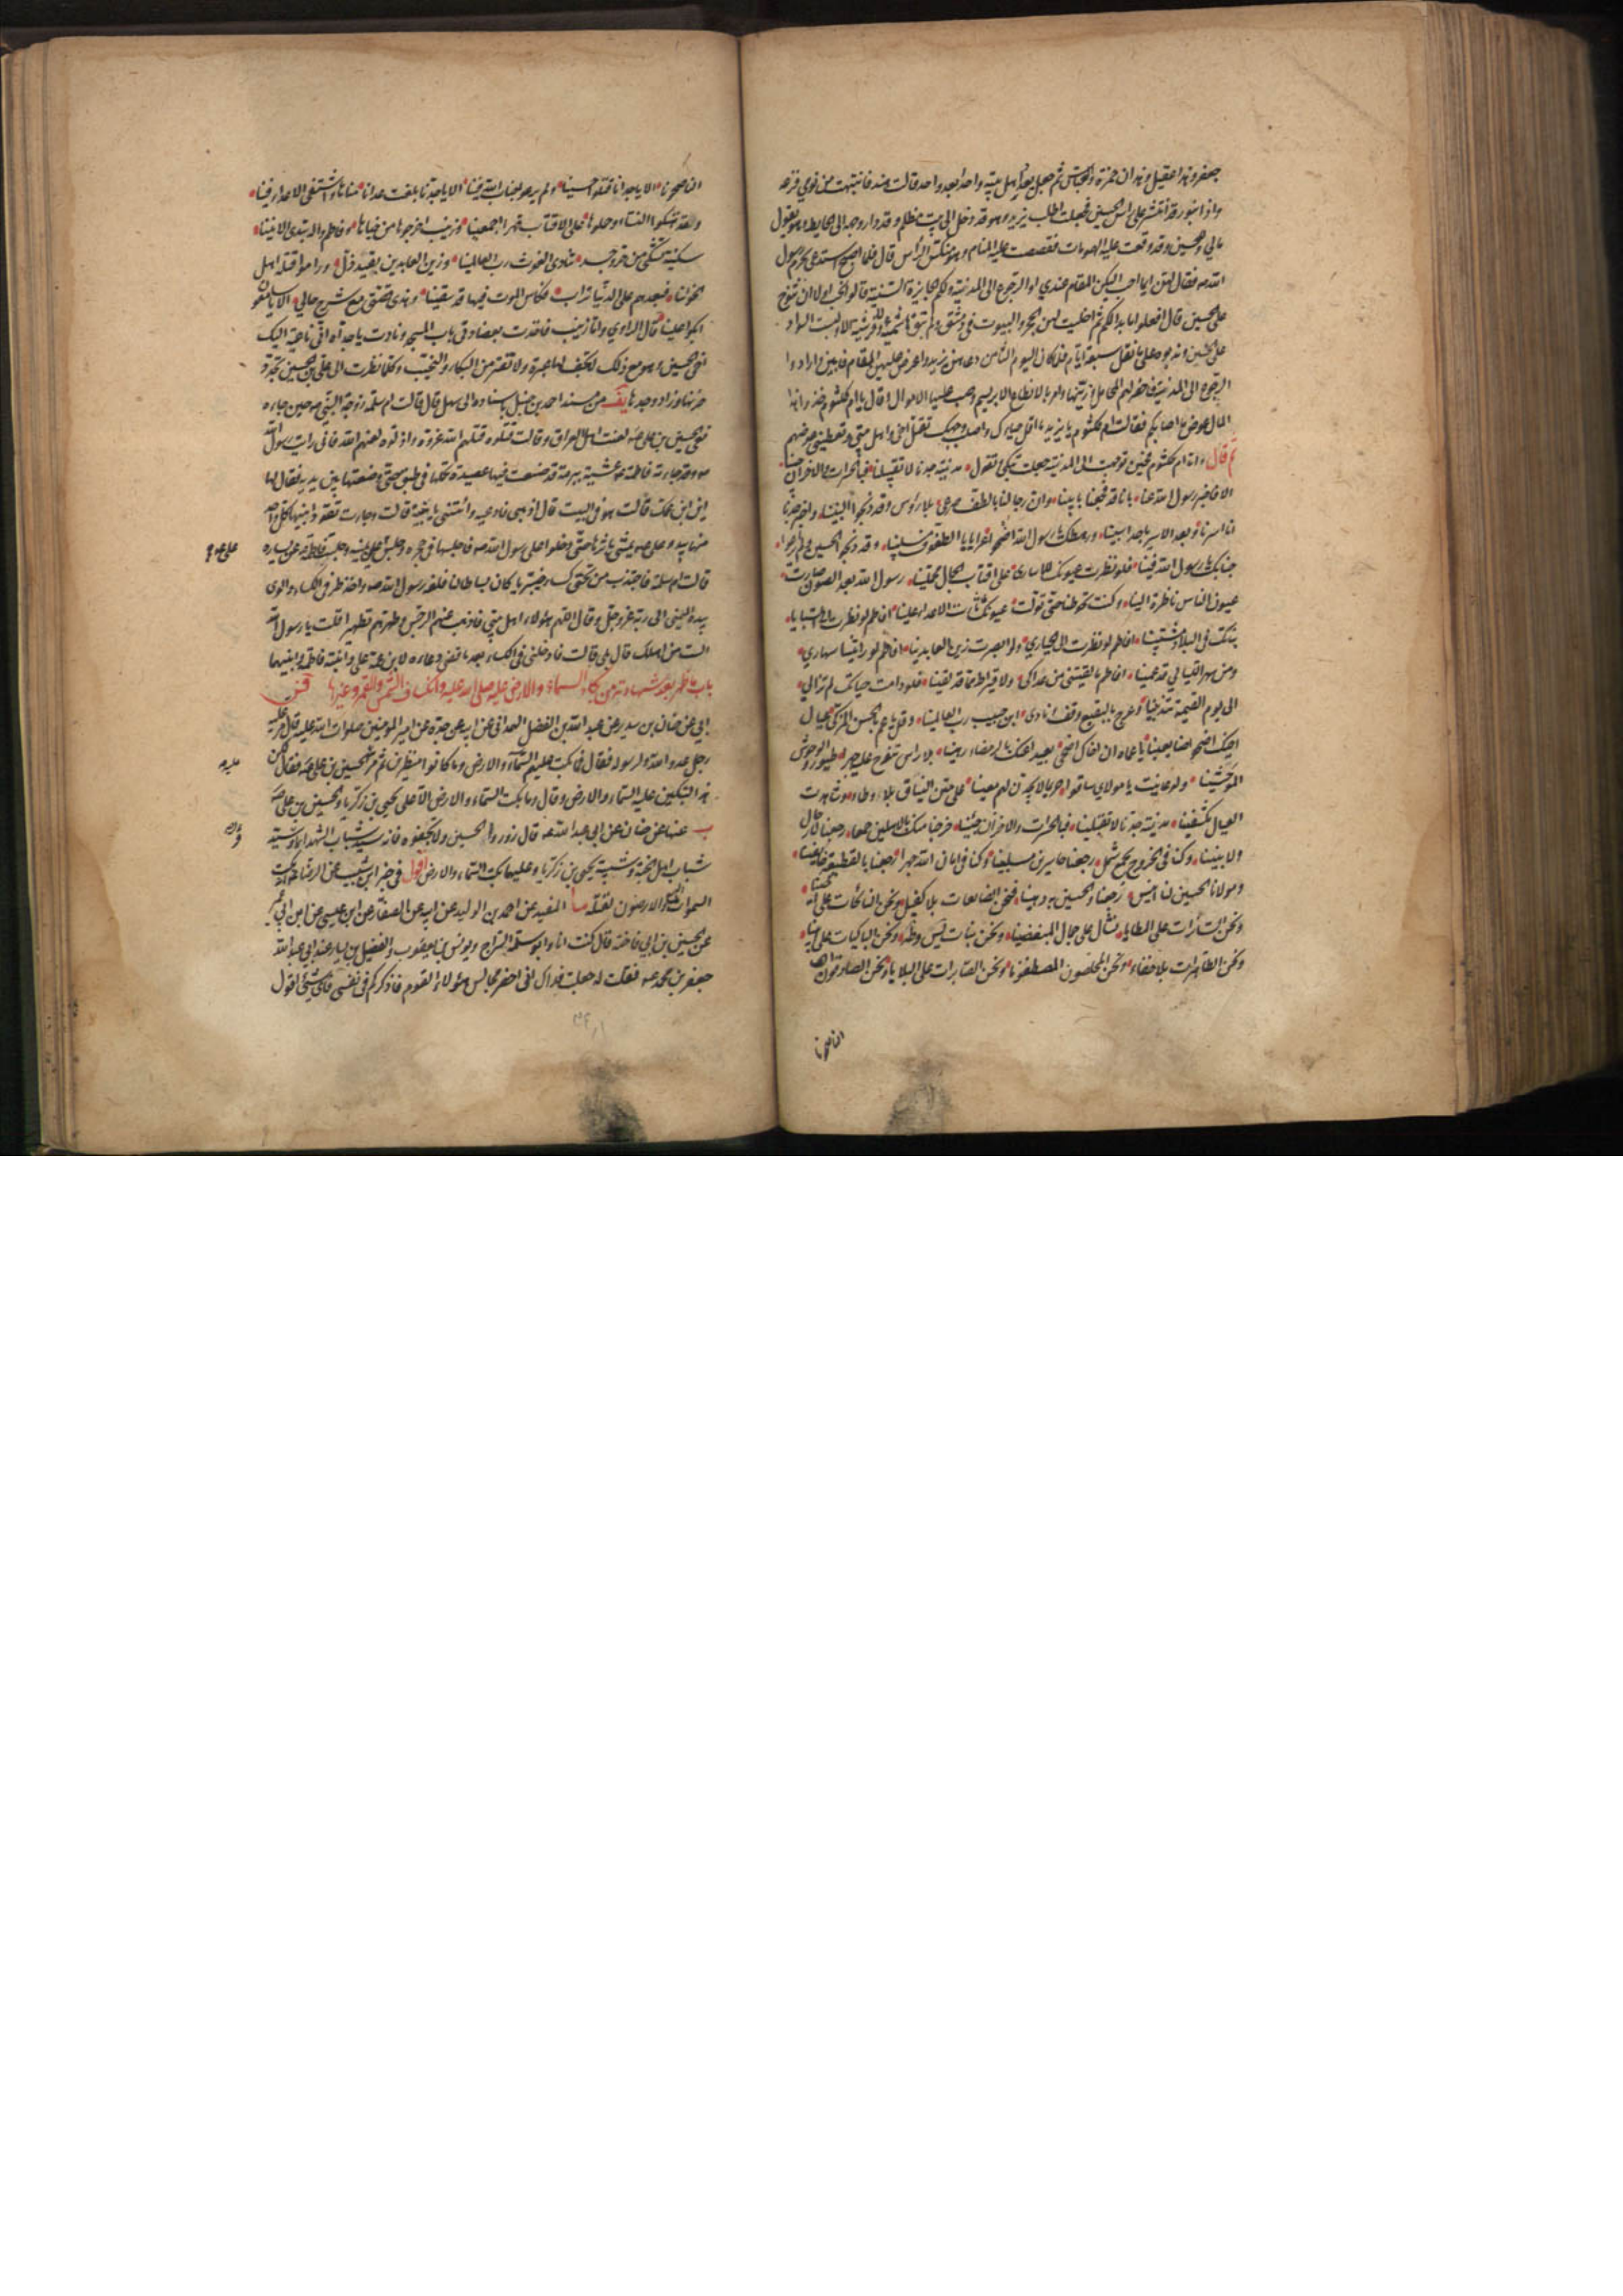 جعفر وهذا عقيل وهذان حمزة والعباس ثم جعل يعد اهل بيته واحدا بعد واحد قالت هند فانتبهت من نومي فزعة
واذا بنور قد انتشر على راس الحسين فجعلت اطلب يزيد وهو قد دخل الى بيت مظلم وقد دار وجهه الى الحايط وهو يقول
مالي وللحسين وقد وقعت عليه الهمومات فقصصت عليه المنام وهو منكس الراس قال فلما اصبح استدعى بحرم رسول
الله ص فقال لهن ايما احب اليكن المقام عندي او الرجوع الى المدينة ولكم الجايزة السنية قالوا نحب اولا ان ننوح
على الحسين قال افعلوا ما بدا لكم ثم اخليت لهن الحجر والبيوت في دمشق ولم تبق هاشمية ولا قرشية الا ولبست السواد
على الحسين وندبوه على ما نقل سبعة ايام فلما كان اليوم الثامن دعاهن يزيد واعرض عليهن المقام فابين وارادوا
الرجوع الى المدينة فاحضر لهم المحامل وزينها وامر بالانطاع الابريسم وصب عليها الاموال وقال يا ام كلثوم خذوا هذا
المال عوض ما اصابكم فقالت ام كلثوم يا يزيد ما اقل حياءك واصلب وجهك تقتل اخي واهل بيتي وتعطيني عوضهم
ثم قال واما ام كلثوم فحين توجهت الى المدينة جعلت تبكي وتقول مدينة جدنا لا تقبلينا فبالحسرات والاحزان جينا
الا فاخبر رسول الله عنا بانا قد فجعنا بابينا وان رجالنا بالطف صرعى بلا رؤس وقد ذبحوا البنينا واخبر جدنا
انا اسرنا وبعد الاسر يا جدا سبينا ورهطك يا رسول الله اضحوا عرايا بالطفوف مسلبينا وقد ذبحوا الحسين ولم يراعوا
جنابك يا رسول الله فينا فلو نظرت عيونك للاسارى على اقتاب الجمال محملينا رسول الله بعد الصون صارت
عيون الناس ناظرة الينا وكنت تحوطنا حتى تولت عيونك ثارت الاعداء علينا افاطم لو نظرت الى السبايا
بناتك في البلاد مشتتينا افاطم لو نظرت الى الحيارى ولو ابصرت زين العابدينا افاطم لو رايتينا سهارى
ومن سهر الليالي قد عمينا افاطم ما لقيتي من عداكي ولا قيراط مما قد لقينا فلو دامت حياتك لم تزالي
الى يوم القيمة تندبينا وعرج بالبقيع وقف وناد ءابن حبيب رب العالمينا وقل يا عم يا الحسن المزكى عيال
اخيك اضحوا ضايعينا ايا عماه ان اخاك اضحى بعيدا عنك بالرمضاء رهينا بلا راس تنوح عليه جهرا طيور والوحوش
الموحشينا ولو عاينت يا مولاي ساقوا حريما لا يجدن لهم معينا على متن النياق بلا وطاء وشاهدت
العيال مكشفينا مدينة جدنا لا تقبلينا فبالحسرات والاحزان جئنا خرجنا منك بالاهلين جمعا رجعنا لا رجال
ولا بنينا وكنا في الخروج بجمع شمل رجعنا حاسرين مسلبينا وكنا في امان الله جهرا رجعنا بالقطيعة خايفينا
ومولانا الحسين لنا انيس رجعنا والحسين به رهينا فنحن الضايعات بلا كفيل ونحن النائحات على اخينا
ونحن السائرات على المطايا نشال على جمال المبغضينا ونحن بنات يس وطه ونحن الباكيات على ابينا
ونحن الطاهرات بلا خفاء ونحن المخلصون المصطفونا ونحن الصابرات على البلايا ونحن الصادقون
الناصحونا
الناصحونا الا يا جدنا قتلوا حسينا ولم يرعوا جناب الله فينا الا يا جدنا بلغت عدانا مناها واشتفى الاعداء فينا
ولقد هتكوا النساء وحملوها على الاقتاب قهرا اجمعينا وزينب اخرجوها من خباها وفاطم واله تبدي الانينا
سكينة تشتكي من حر وجد تنادي الغوث رب العالمينا وزين العابدين بقيد ذل وراموا قتله اهل
الخؤنا فبعدهم على الدنيا تراب فكاس الموت فيها قد سقينا وهذي قصتي مع شرح حالي الا يا سامعون
ابكوا علينا قال الراوي واما زينب فاخذت بعضادتي باب المسجد ونادت يا جداه اني ناعية اليك
اخي الحسين وهي مع ذلك لا تجف لها عبرة ولا تفتر من البكاء والنحيب وكلما نظرت الى علي بن الحسين تجدد
حزنها وزاد وجدها يف من مسند احمد بن حنبل باسناده الى سهل قال قالت ام سلمة زوجة النبي ص حين جاءه
نعي الحسين بن علي ع لعنت اهل العراق وقالت قتلوه قتلهم الله غروه واذلوه لعنهم الله فاني رايت رسول الله
ص وقد جاءته فاطمة ع عشية ببرمة قد صنعت فيها عصيدة تحملها في طبق حتى وضعتها بين يديه فقال لها
اين ابن عمك قالت هو في البيت قال اذهبي فادعيه وائتني بابنيه قالت وجاءت تقود ابنيها كل واحد
منهما بيد وعلي ع يمشي باثرها حتى دخلوا على رسول الله ص فاجلسهما في حجره وجلس علي على يمينه وجلست فاطمة عن يساره
علي ع
قالت ام سلمة فاجتذب من تحتي كساء خيبريا كان بساطا لنا فلفه رسول الله ص واخذ طرفي الكساء والوى
بيده اليمنى الى ربه عز وجل وقال اللهم هؤلاء اهل بيتي فاذهب عنهم الرجس وطهرهم تطهيرا قلت يا رسول الله
الست من اهلك قال بلى قالت فادخلني في الكساء بعد ما قضى دعاءه لابن عمه علي وابنته فاطمة وابنيهما
باب ما ظهر بعد شهادته من بكاء السماء والارض عليه صلى الله عليه وانكساف الشمس والقمر وغيرها فس
ابي عن حنان بن سدير عن عبد الله بن الفضل الهمداني عن ابيه عن جده عن امير المؤمنين صلوات الله عليه قال مر عليه
رجل عدو لله ولرسوله فقال فما بكت عليهم السماء والارض وما كانوا منظرين ثم مر الحسين بن علي ع فقال لكن
عليه
هذا لتبكين عليه السماء والارض وقال وما بكت السماء والارض الا على يحيى بن زكريا والحسين بن علي ع
ب عنهما عن حنان عن ابي عبد الله ع قال زوروا الحسين ولا تجفوه فانه سيد شباب الشهداء وسيد
شباب اهل الجنة وشبيه يحيى بن زكريا وعليهما بكت السماء والارض اقول في خبر ابن شبيب عن الرضا ع بكت
السموات السبع والارضون لقتله ما المفيد عن احمد بن الوليد عن ابيه عن الصفار عن ابن عيسى عن ابن ابي عمير
عن الحسين بن ابي فاخته قال كنت انا وابو سلمة السراج ويونس بن يعقوب والفضيل بن يسار عند ابي عبد الله
جعفر بن محمد ع فقلت له جعلت فداك اني احضر مجالس هؤلاء القوم فاذكركم في نفسي فاي شيء اقول